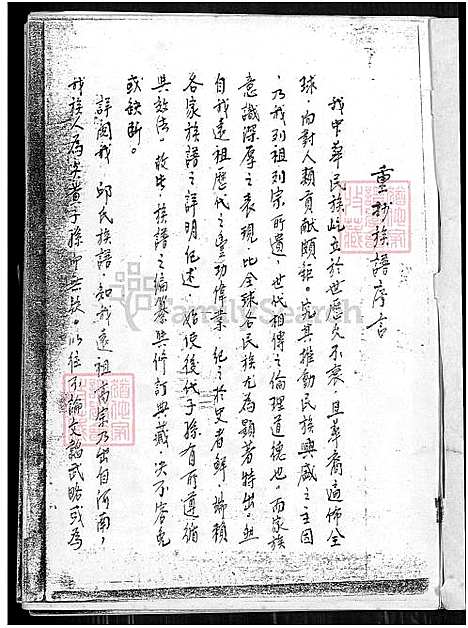 重抄族譜序言
我中華民族屹立於世歷久不衰，且華裔遍佈全
球，而對人類貢獻頗鉅。究其推動民族興盛之主因
，乃我列祖列宗所遺，世代相傳之倫理道德也。而家族
意識深厚之表現，比全球各民族尤為顯著特出。然
自我遠祖歷代之豐功偉業，紀之於史者鮮，端賴
各家族譜之詳明紀述，始使後代子孫有所遵循
與效法。故此，族譜之編纂與修訂典藏，決不容免
或缺斷。
詳閱我邱氏族譜，知我遠祖高宗乃出自河南，
我族人為炎黃子孫即無疑。以往不論文韜武略或為
FamilySearch